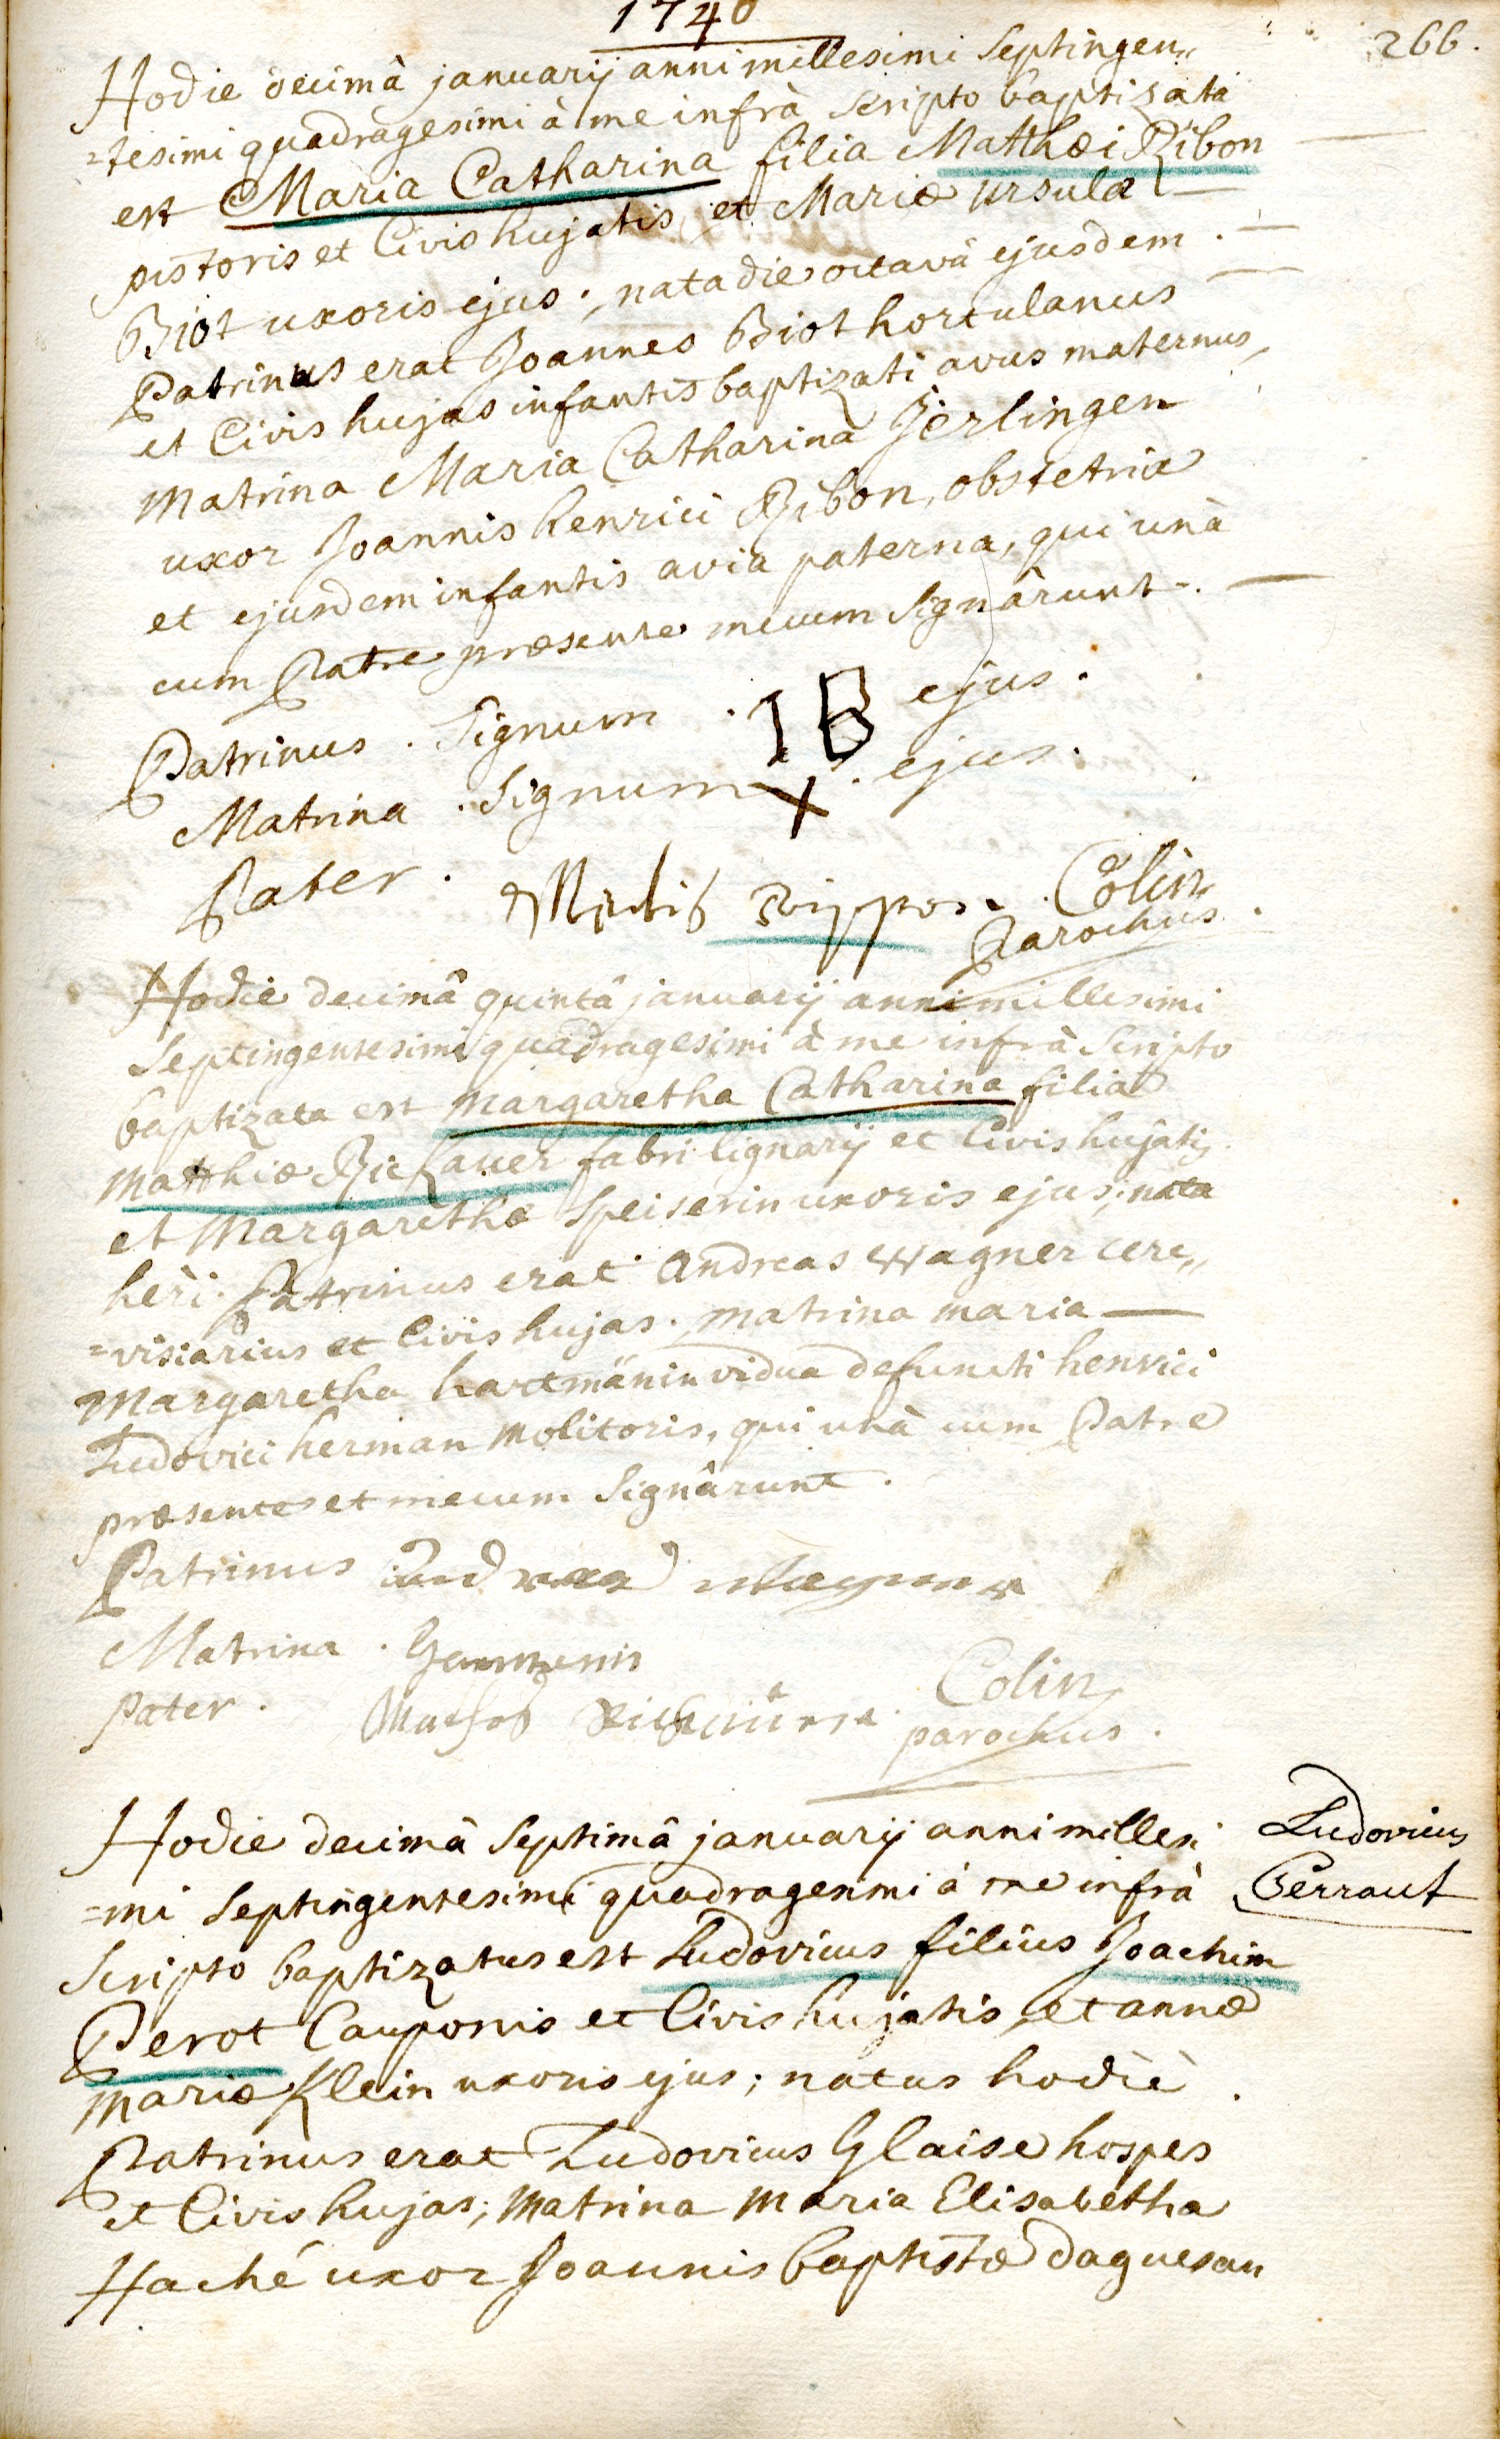 1740
266.
Hodie decimâ januarij anni millesimi Septingen„
=tesimi quadragesimi à me infrà scripto baptizata
est Maria Catharina filia Matthæi Ribon
pistoris et Civis hujatis, et Mariæ ursulæ
Biot uxoris ejus; nata die octavâ ejusdem.
Patrinus erat Joannes Biot hortulanus
et Civis hujas infantis baptizati avus maternus,
Matrina Maria Catharina Jerlingen
uxor Joannis henrici Ribon, obstetrix
et ejusdem infantis avia paterna, qui unà
cum Patre præsente mecum Signârunt.
Patrinus. Signum. IB ejus.
Matrina. Signum X. ejus.
Pater. Colin
Parochus.
Hodie decimâ quintâ januarij anni millesimi
Septingentesimi quadragesimi à me infrà Scripto
baptizata est Margaretha Catharina filia
Matthiæ Rickauer fabri lignarij et Civis hujatis
et Margarethæ Speiserin uxoris ejus; nata
heri. Patrinus erat Andreas Wagner cere„
=visiarius et Civis hujas. Matrina maria
Margaretha hartmänin vidua defuncti henrici
Ludovici herman Molitoris, qui unà cum Patre
præsente et mecum Signârunt.
Patrinus
Matrina.
Pater. Colin
parochus.
Hodie decimâ Septimâ januarij anni millesi
=mi Septingentesimi quadragesimi à me infrà
Scripto baptizatus est Ludovicus filius Joachim
Perot Cauponis et Civis hujatis, et annæ
mariæ Klein uxoris ejus; natus hodiè.
Patrinus erat Ludovicus Glaise hospes
et Civis hujas; Matrina Maria Elisabetha
Haché uxor Joannis baptistæ daguesan
Ludovicus
Perraut